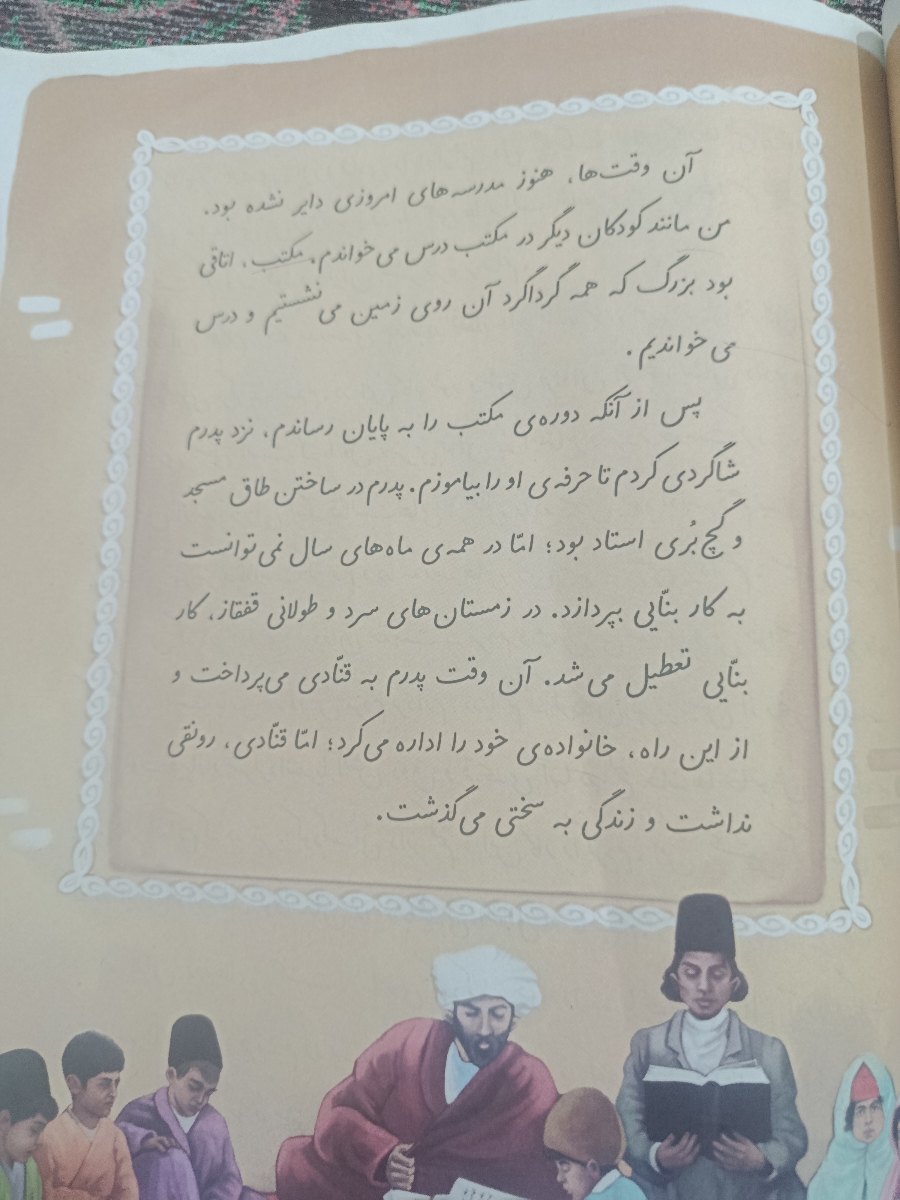 آن وقت‌ها، هنوز مدرسه‌های امروزی دایر نشده بود.
من مانند کودکان دیگر در مکتب درس می‌خواندم. مکتب، اتاقی
بود بزرگ که همه گرداگرد آن روی زمین می‌نشستیم و درس
می‌خواندیم.
پس از آنکه دوره‌ی مکتب را به پایان رساندم، نزد پدرم
شاگردی کردم تا حرفه‌ی او را بیاموزم. پدرم در ساختن طاق مسجد
و گچ‌بُری استاد بود؛ امّا در همه‌ی ماه‌های سال نمی‌توانست
به کار بنّایی بپردازد. در زمستان‌های سرد و طولانی قفقاز، کار
بنّایی تعطیل می‌شد. آن وقت پدرم به قنّادی می‌پرداخت و
از این راه، خانواده‌ی خود را اداره می‌کرد؛ امّا قنّادی، رونقی
نداشت و زندگی به سختی می‌گذشت.